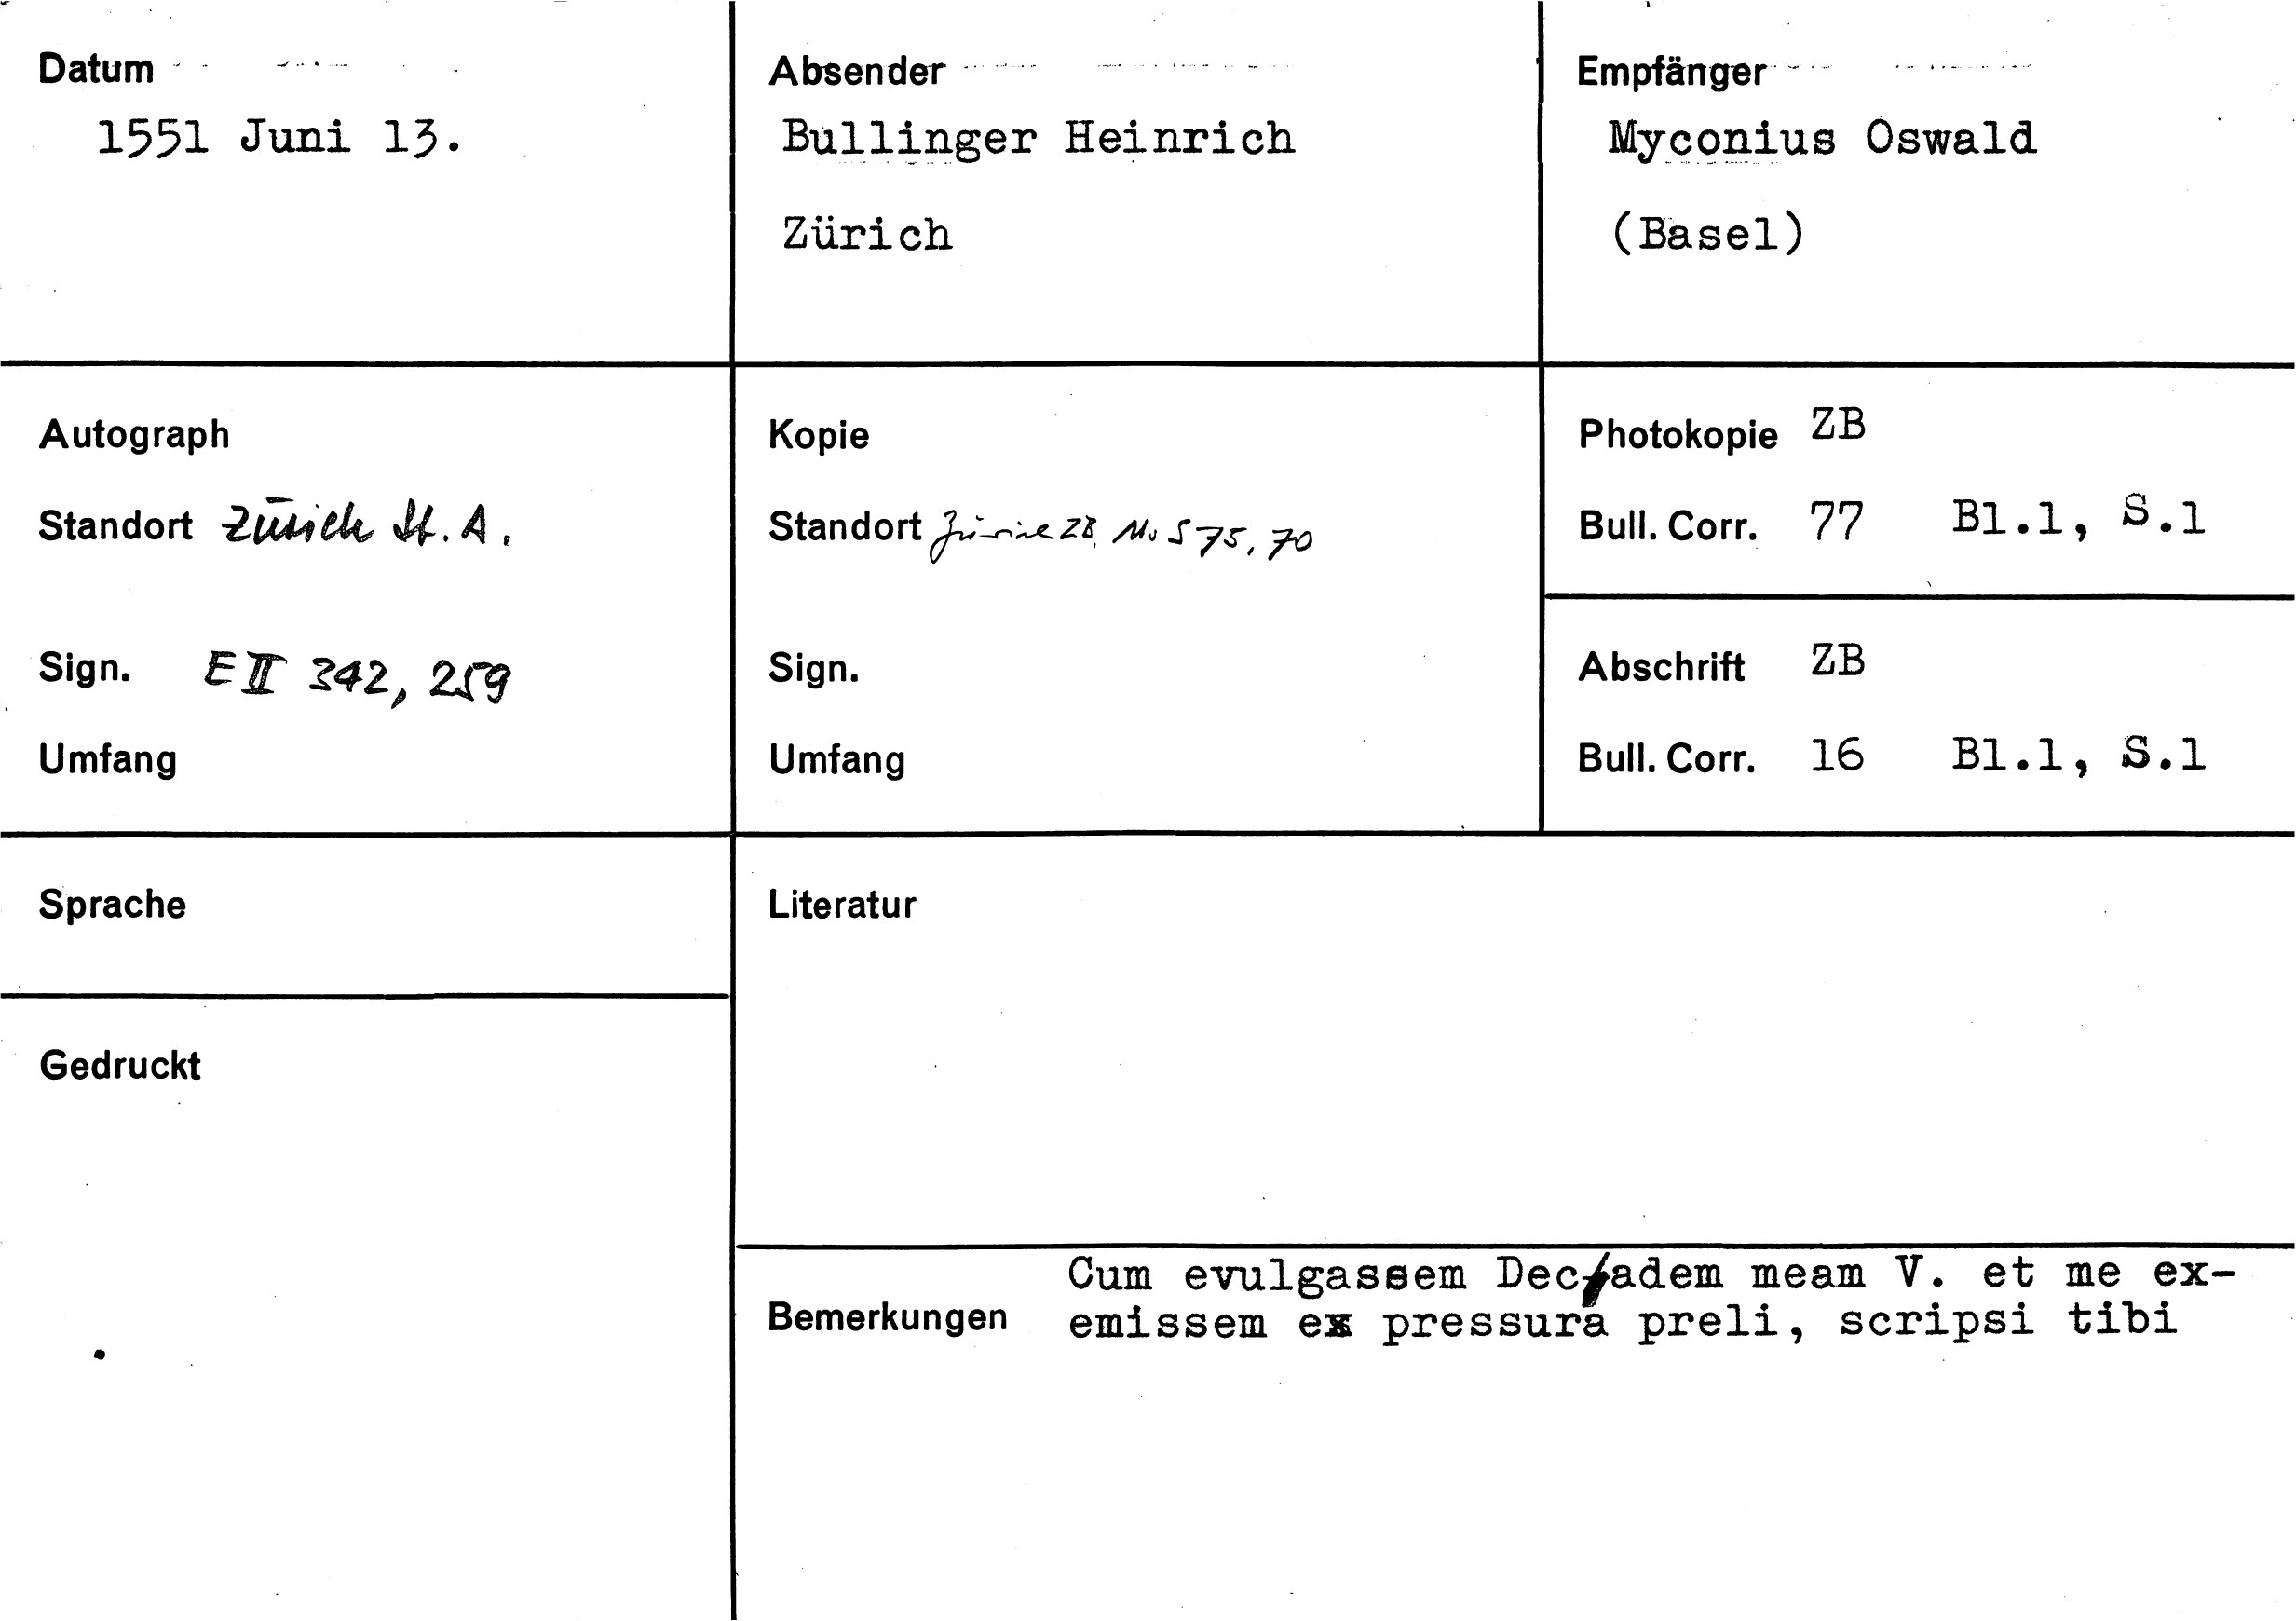 Datum
1551 Juni 13.
Absender
Bullinger Heinrich
Zürich
Empfänger
Myconius Oswald
(Basel)
Autograph
Standort Zürich St. A.
Sign. E II 342, 259
Umfang
Kopie
Standort Zürich ZB, Ms S 75, 70
Sign.
Umfang
Photokopie ZB
Bull. Corr. 77 Bl.1, S.1
Abschrift ZB
Bull. Corr. 16 Bl.1, S.1
Sprache
Gedruckt
Literatur
Bemerkungen
Cum evulgassem Decadem meam V. et me ex-
emissem ex pressura preli, scripsi tibi